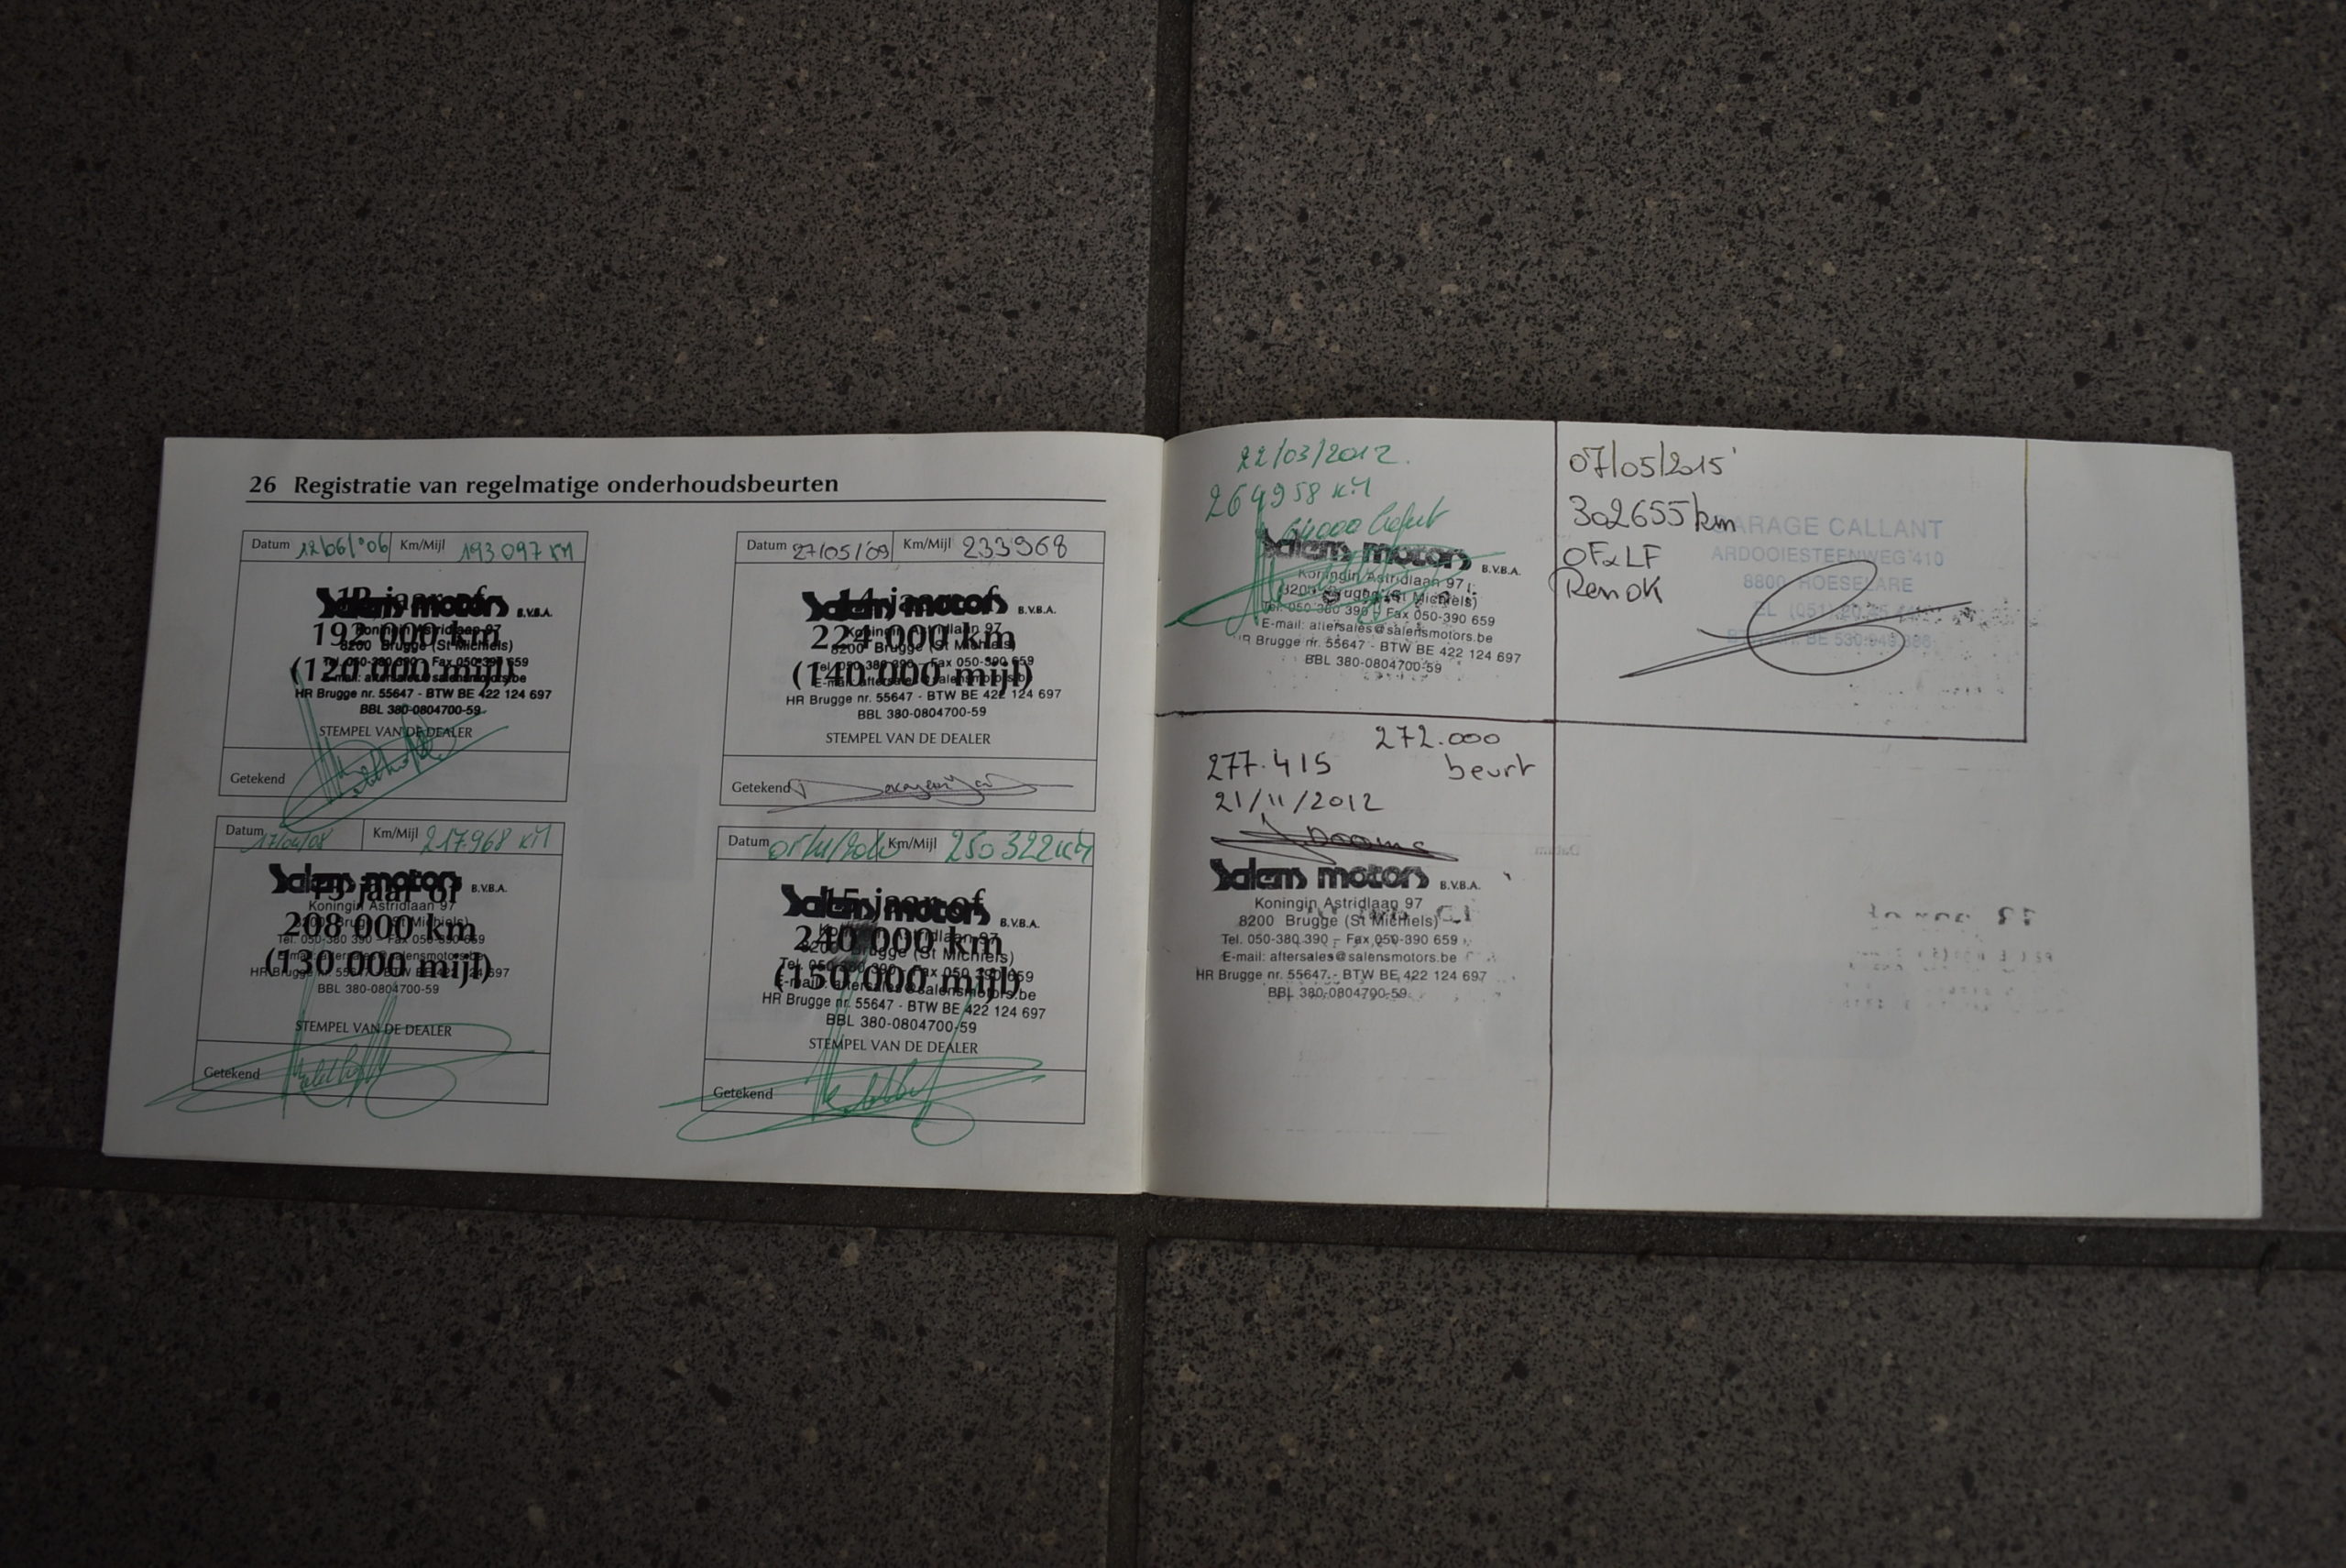 26 Registratie van regelmatige onderhoudsbeurten
Datum 12/06/'06 Km/Mijl 193.097 KM
12 jaar of
192.000 km
(120.000 mijl)
Salens motors B.V.B.A.
Koningin Astridlaan 97
8200 Brugge (St Michiels)
Tel. 050-380 390 - Fax 050-390 659
E-mail: aftersales@salensmotors.be
HR Brugge nr. 55647 - BTW BE 422 124 697
BBL 380-0804700-59
STEMPEL VAN DE DEALER
Getekend
Datum 27/05/'09 Km/Mijl 233968
14 jaar of
224.000 km
(140.000 mijl)
Salens motors B.V.B.A.
Koningin Astridlaan 97
8200 Brugge (St Michiels)
Tel. 050-380 390 - Fax 050-390 659
E-mail: aftersales@salensmotors.be
HR Brugge nr. 55647 - BTW BE 422 124 697
BBL 380-0804700-59
STEMPEL VAN DE DEALER
Getekend
Datum 17/04/08 Km/Mijl 217.968 KM
13 jaar of
208.000 km
(130.000 mijl)
Salens motors B.V.B.A.
Koningin Astridlaan 97
8200 Brugge (St Michiels)
Tel. 050-380 390 - Fax 050-390 659
E-mail: aftersales@salensmotors.be
HR Brugge nr. 55647 - BTW BE 422 124 697
BBL 380-0804700-59
STEMPEL VAN DE DEALER
Getekend
Datum Km/Mijl 250322 KM
15 jaar of
240.000 km
(150.000 mijl)
Salens motors B.V.B.A.
Koningin Astridlaan 97
8200 Brugge (St Michiels)
Tel. 050-380 390 - Fax 050 390 659
E-mail: aftersales@salensmotors.be
HR Brugge nr. 55647 - BTW BE 422 124 697
BBL 380-0804700-59
STEMPEL VAN DE DEALER
Getekend
22/03/2012.
264958 KM
Salens motors B.V.B.A.
Koningin Astridlaan 97
8200 Brugge (St Michiels)
Tel. 050 380 390 - Fax 050-390 659
E-mail: aftersales@salensmotors.be
HR Brugge nr. 55647 - BTW BE 422 124 697
BBL 380-0804700-59
07/05/2015
302655 km
OF & LF
Ren OK
GARAGE CALLANT
ARDOOIESTEENWEG 410
8800 ROESELARE
272.000
beurt
277.415
21/11/2012
Salens motors B.V.B.A.
Koningin Astridlaan 97
8200 Brugge (St Michiels)
Tel. 050-380 390 - Fax 050-390 659
E-mail: aftersales@salensmotors.be
HR Brugge nr. 55647 - BTW BE 422 124 697
BBL 380-0804700-59